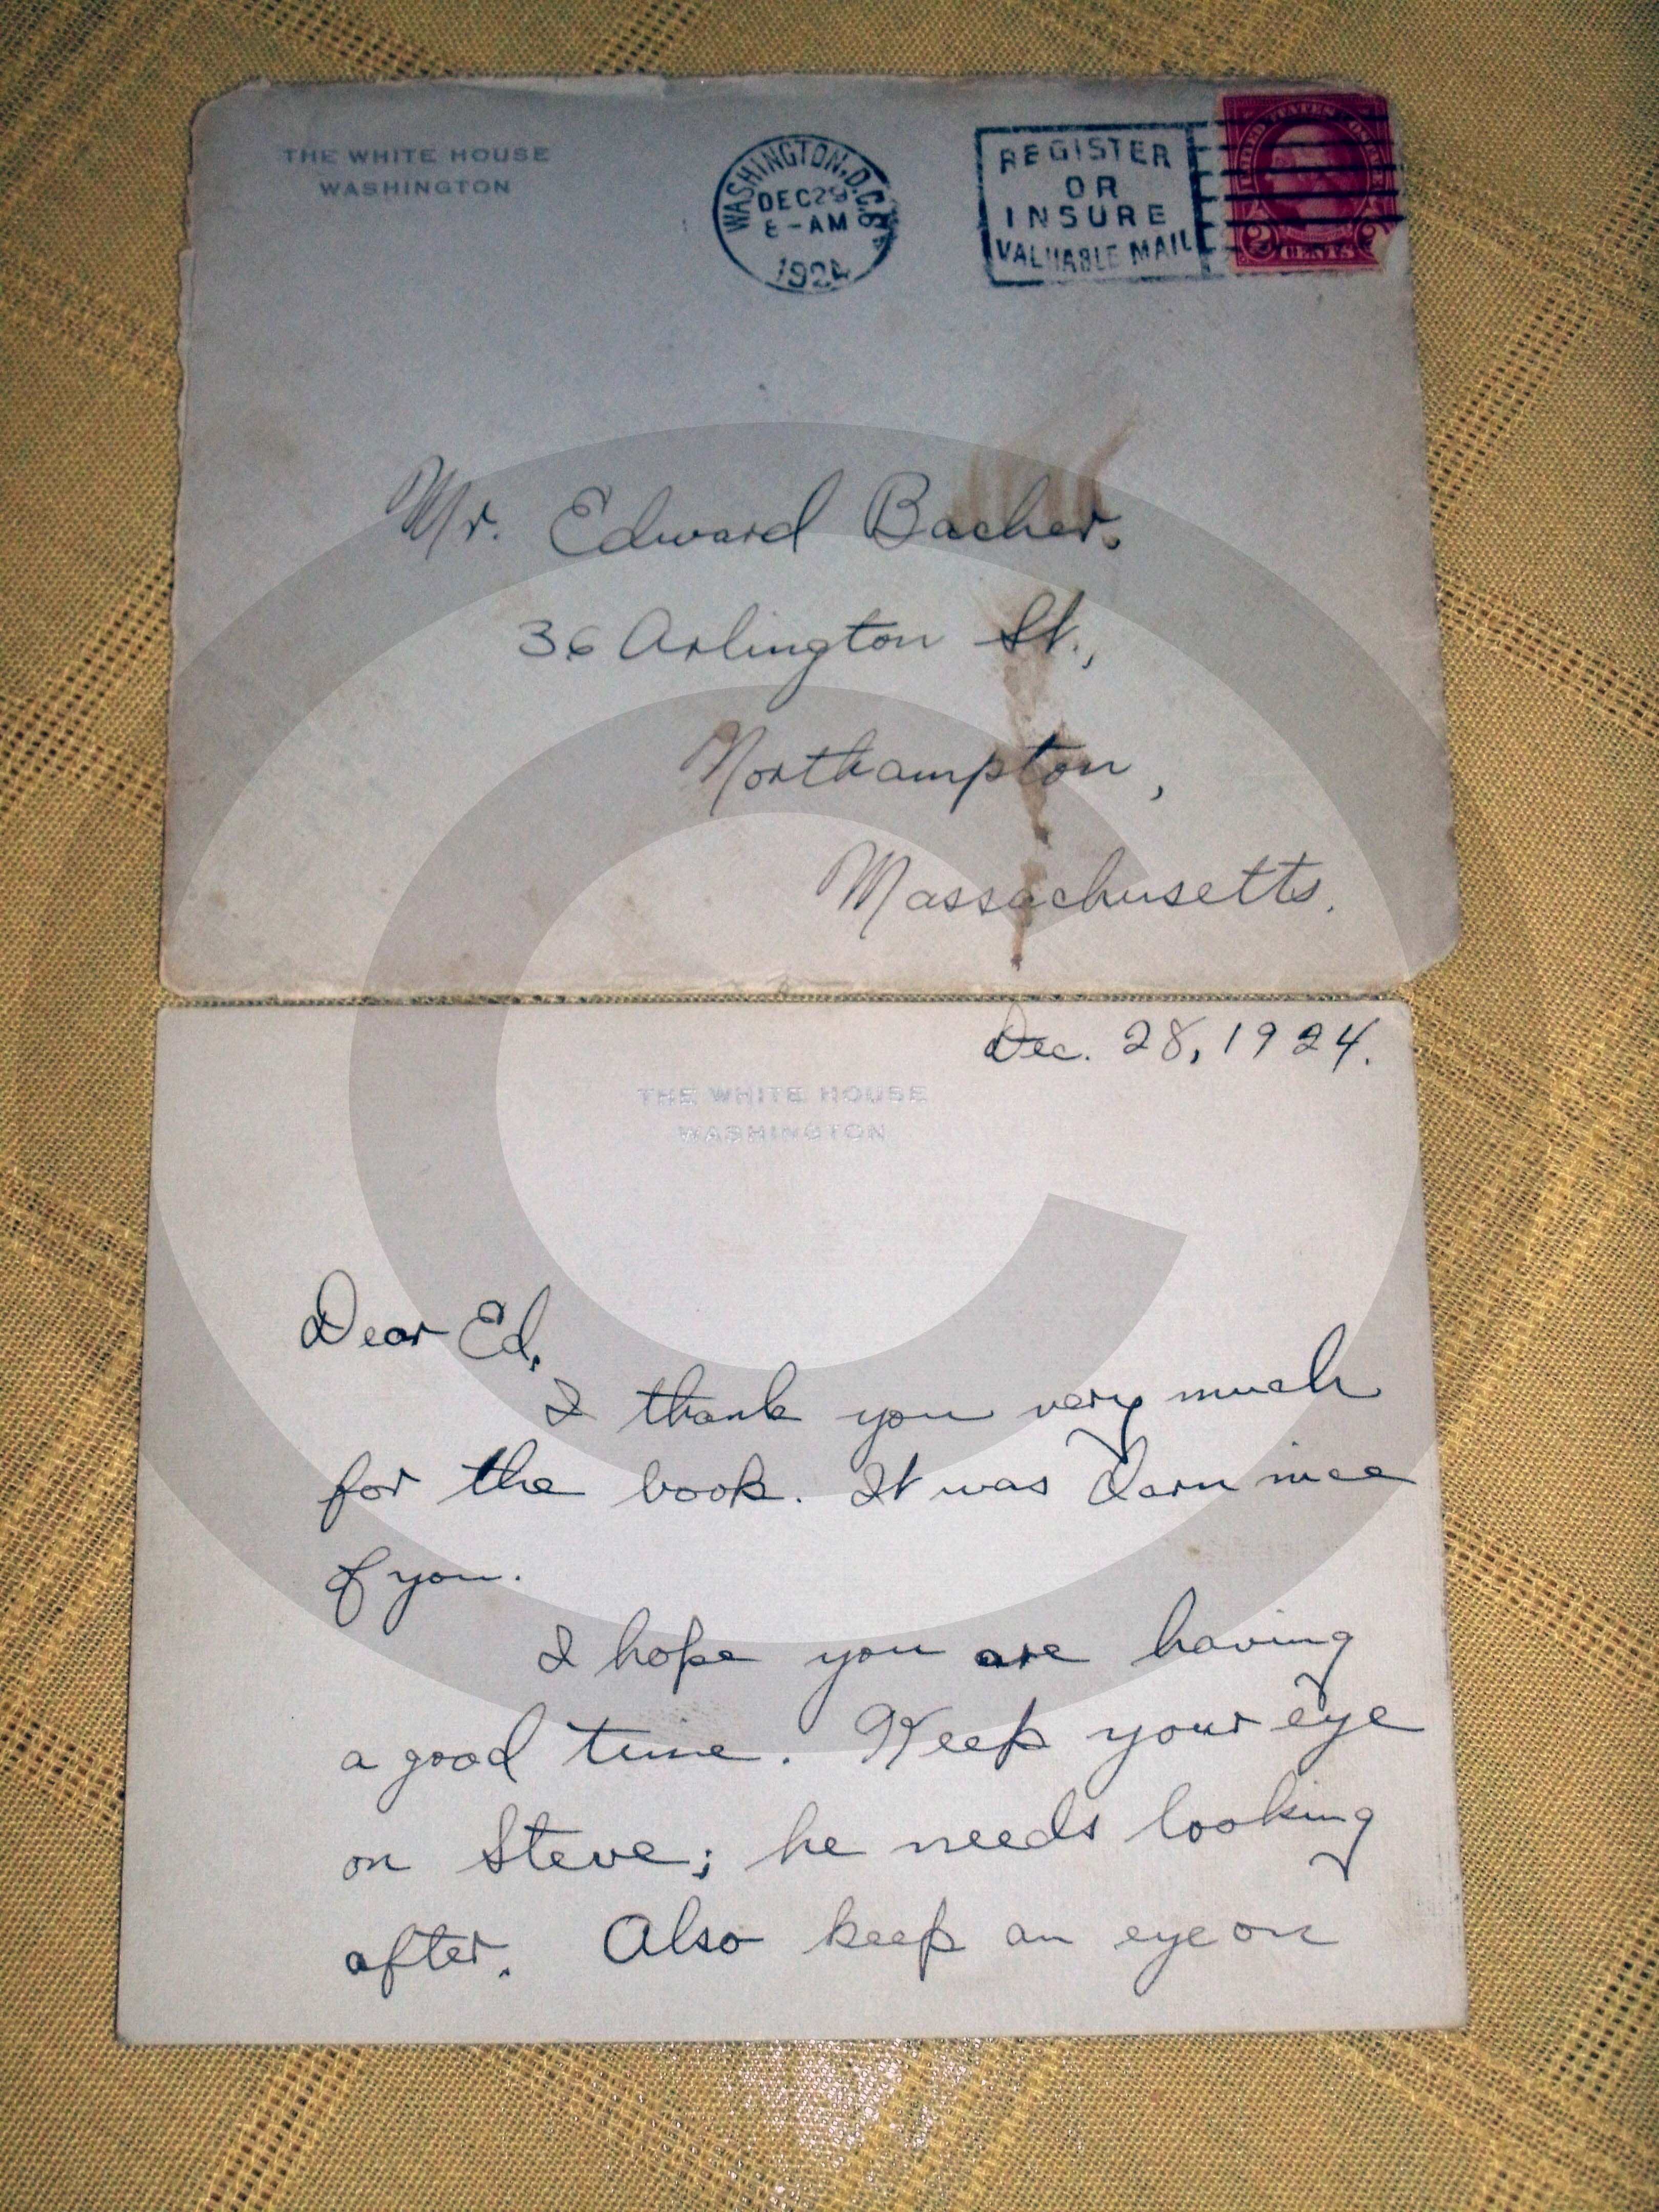 THE WHITE HOUSE
WASHINGTON
WASHINGTON, D.C.
DEC 29
8-AM
1924
REGISTER
OR
INSURE
VALUABLE MAIL
UNITED STATES POSTAGE
2 CENTS 2
Mr. Edward Bacher.
36 Arlington St.,
Northampton,
Massachusetts.
Dec. 28, 1924.
THE WHITE HOUSE
WASHINGTON
Dear Ed,
I thank you very much
for the book. It was darn nice
of you.
I hope you are having
a good time. Keep your eye
on Steve; he needs looking
after. Also keep an eye on